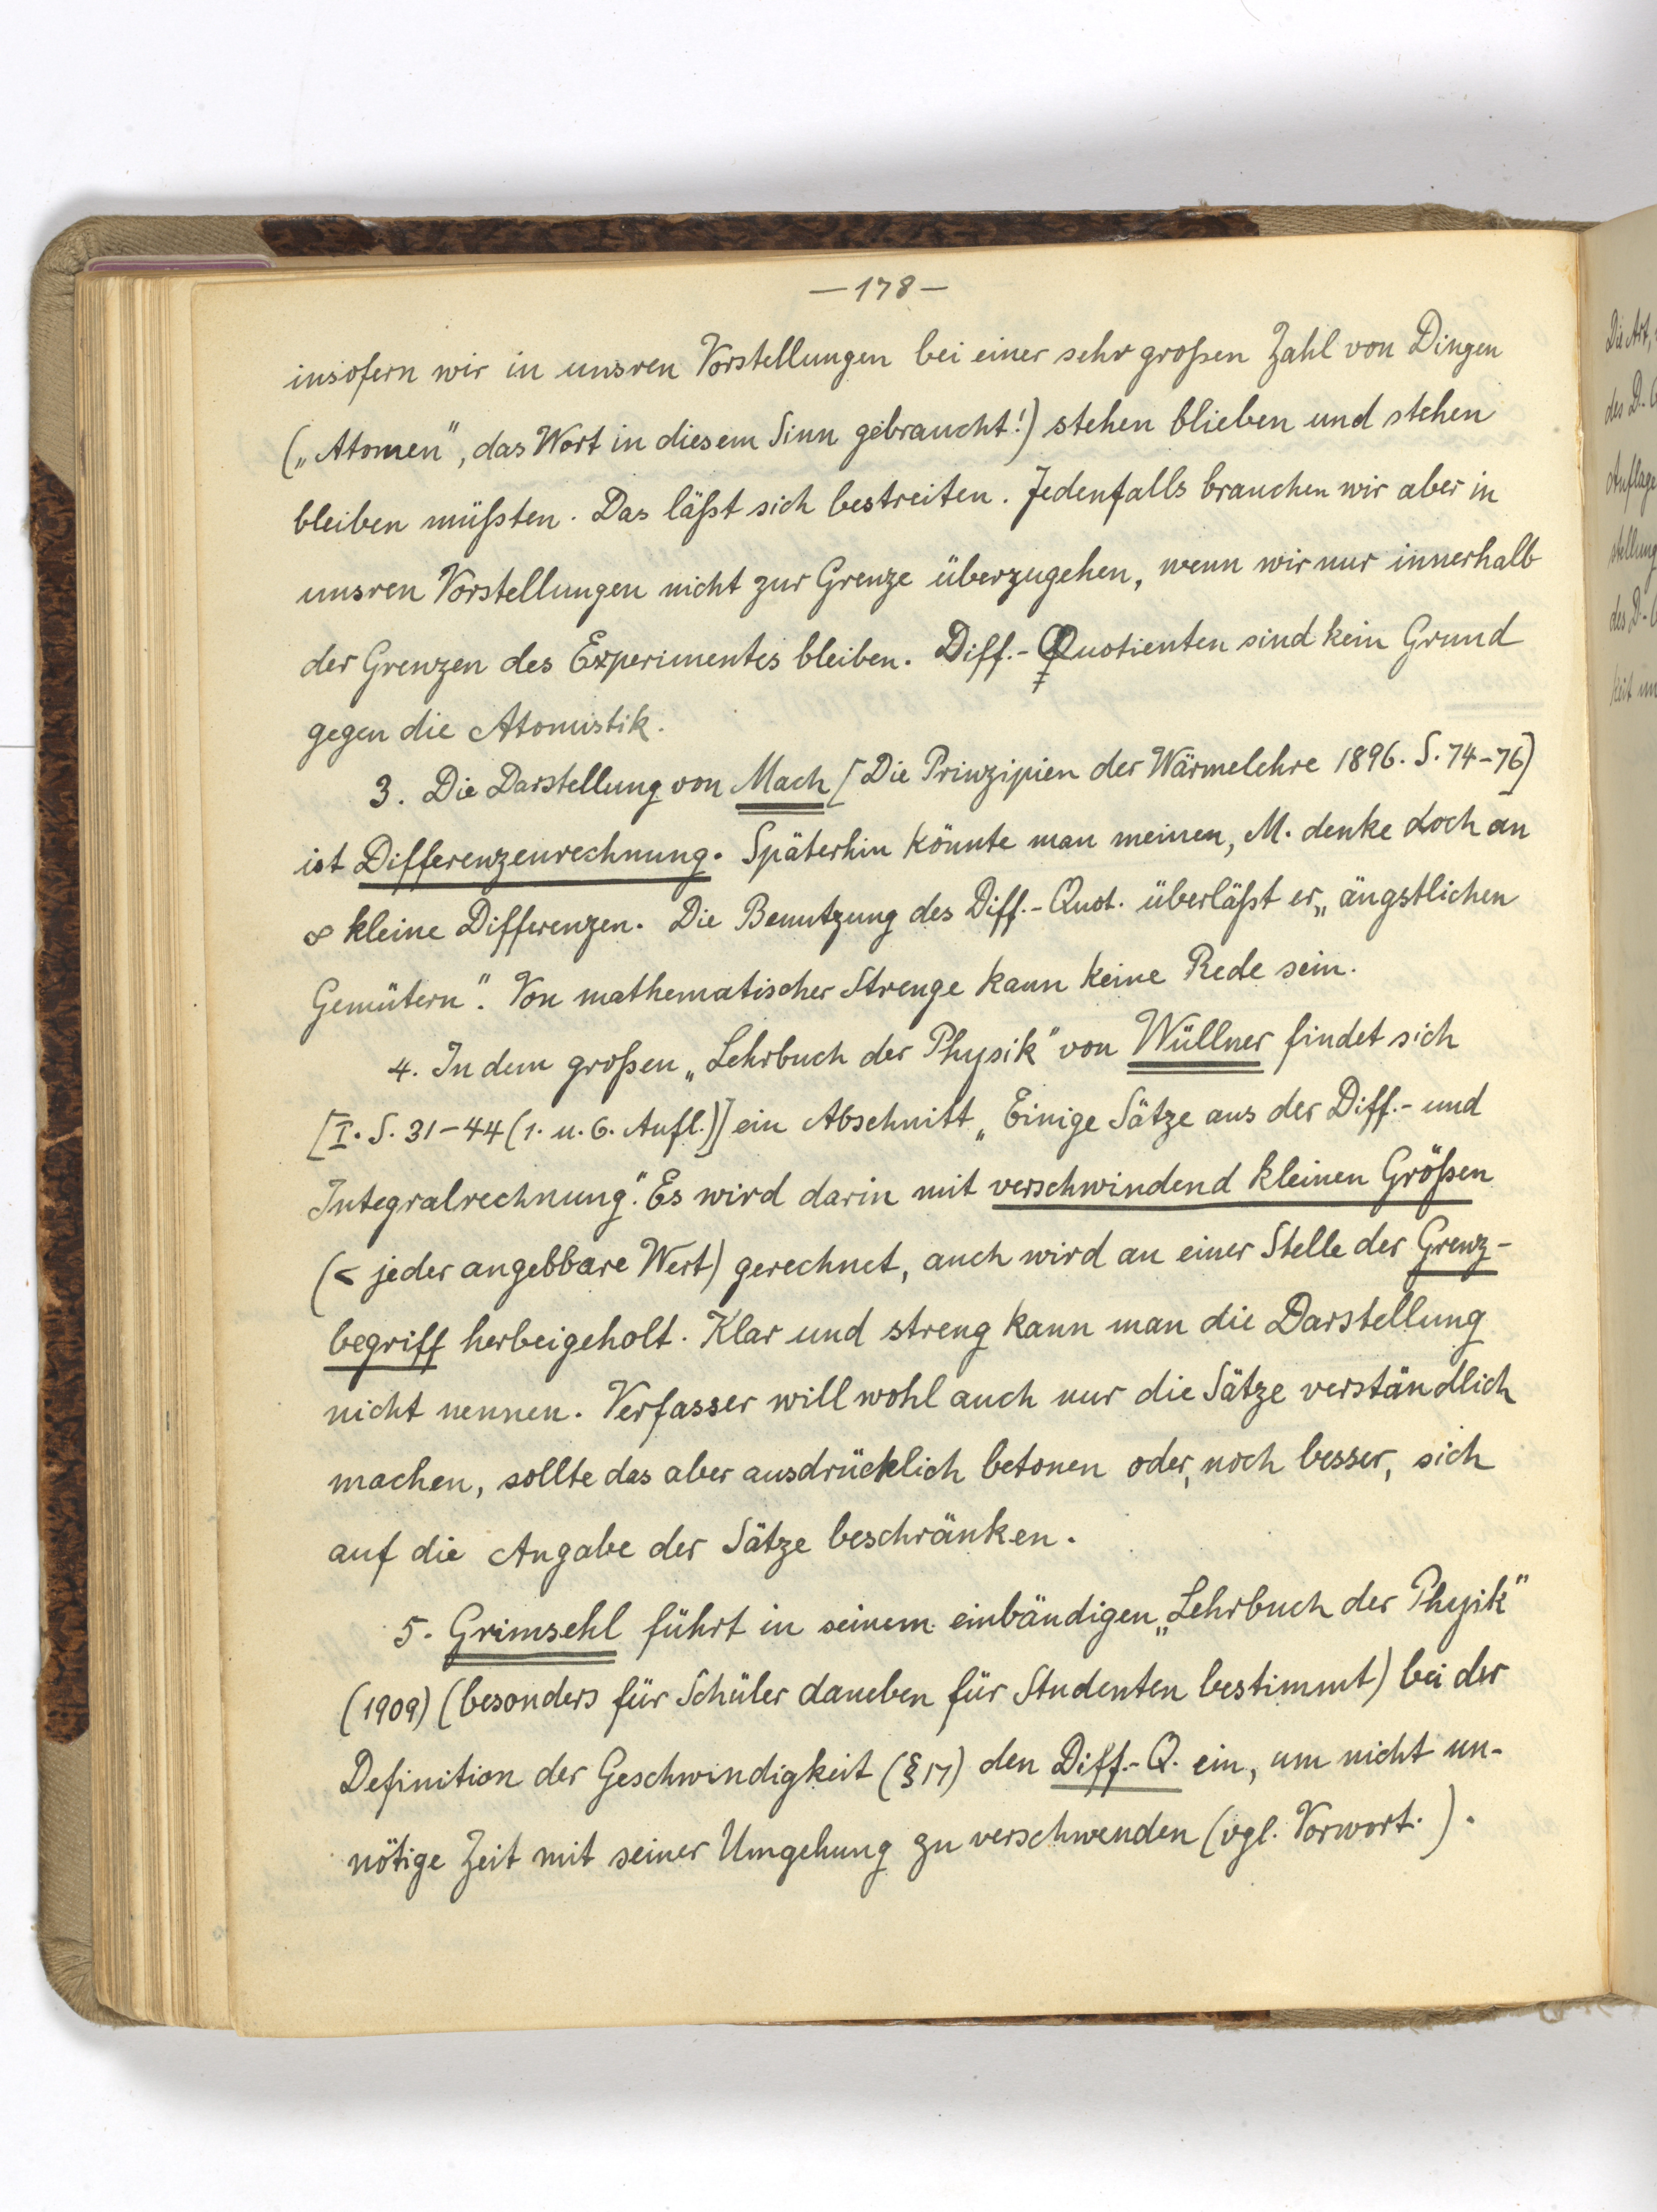 —178—
insofern wir in unsren Vorstellungen bei einer sehr großen Zahl von Dingen
(„Atomen", das Wort in diesem Sinn gebraucht!) stehen blieben und stehen
bleiben müßten. Das läßt sich bestreiten. Jedenfalls brauchen wir aber in
unsren Vorstellungen nicht zur Grenze überzugehen, wenn wir nur innerhalb
der Grenzen des Experimentes bleiben. Diff.-Quotienten sind kein Grund
gegen die Atomistik.
3. Die Darstellung von Mach [Die Prinzipien der Wärmelehre 1896. S. 74-76]
ist Differenzenrechnung. Späterhin könnte man meinen, M. denke doch an
∞ kleine Differenzen. Die Benutzung des Diff.-Quot. überläßt er „ängstlichen
Gemütern". Von mathematischer Strenge kann keine Rede sein.
4. In dem großen „Lehrbuch der Physik" von Wüllner findet sich
[I. S. 31-44 (1. u. 6. Aufl.)] ein Abschnitt „Einige Sätze aus der Diff.- und
Integralrechnung". Es wird darin mit verschwindend kleinen Größen
(< jeder angebbare Wert) gerechnet, auch wird an einer Stelle der Grenz-
begriff herbeigeholt. Klar und streng kann man die Darstellung
nicht nennen. Verfasser will wohl auch nur die Sätze verständlich
machen, sollte das aber ausdrücklich betonen oder, noch besser, sich
auf die Angabe der Sätze beschränken.
5. Grimsehl führt in seinem einbändigen „Lehrbuch der Physik"
(1909) (besonders für Schüler daneben für Studenten bestimmt) bei der
Definition der Geschwindigkeit (§ 17) den Diff.-Q. ein, um nicht un-
nötige Zeit mit seiner Umgehung zu verschwenden (vgl. Vorwort.).
Die Art,
des D.-
Auflage
stellung
des D.-